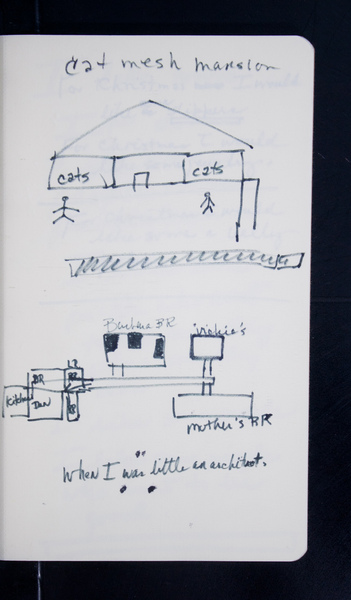 cat mesh mansion
cats cats
Barbara BR Vickie's
LR
BR BR
Kitchen Den BR
mother's BR
When I was little an architect.